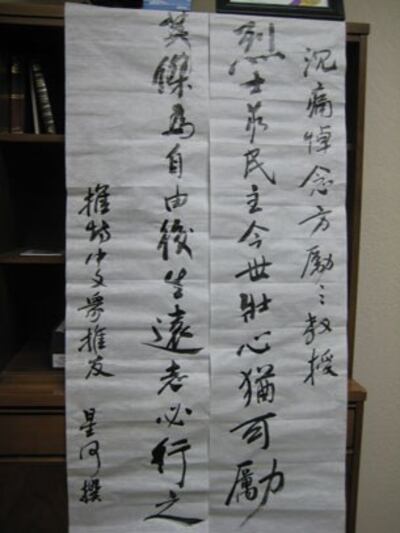 沉痛悼念方勵之教授
烈士求民主今世壯心猶可勵
英傑為自由後生遠志必行之
推特中文眾推友 星河撰